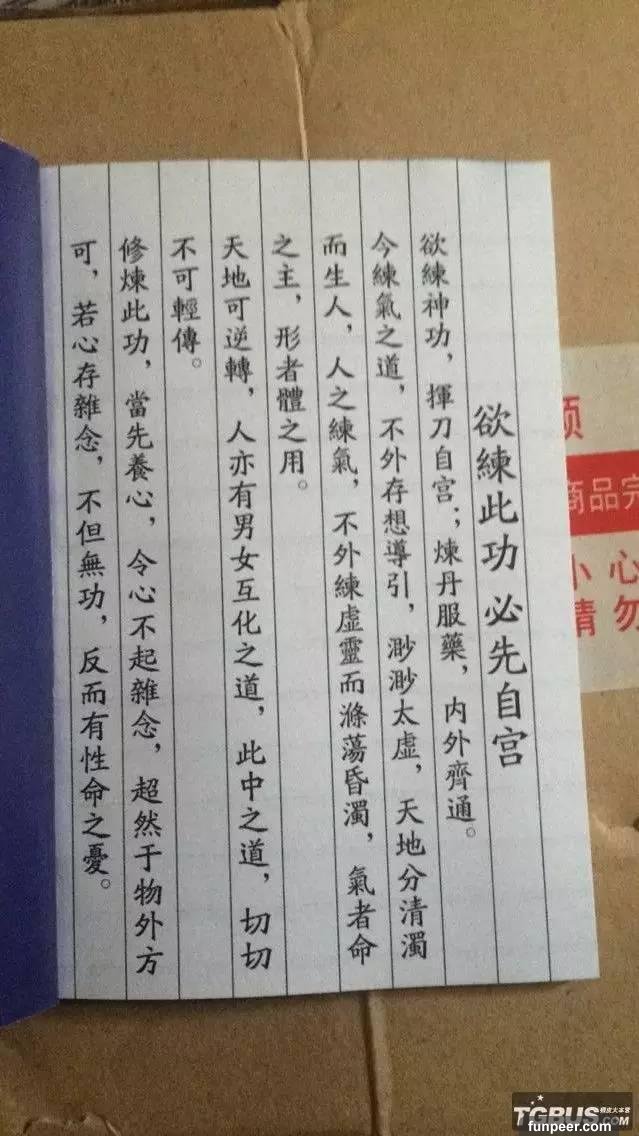 欲練此功 必先自宫
欲練神功，揮刀自宫；煉丹服藥，内外齊通。
今練氣之道，不外存想導引，渺渺太虛，天地分清濁
而生人，人之練氣，不外練虛靈而滌蕩昏濁，氣者命
之主，形者體之用。
天地可逆轉，人亦有男女互化之道，此中之道，切切
不可輕傳。
修煉此功，當先養心，令心不起雜念，超然于物外方
可，若心存雜念，不但無功，反而有性命之憂。
商品完
小心
请勿
TGBUS.COM
funpeer.com